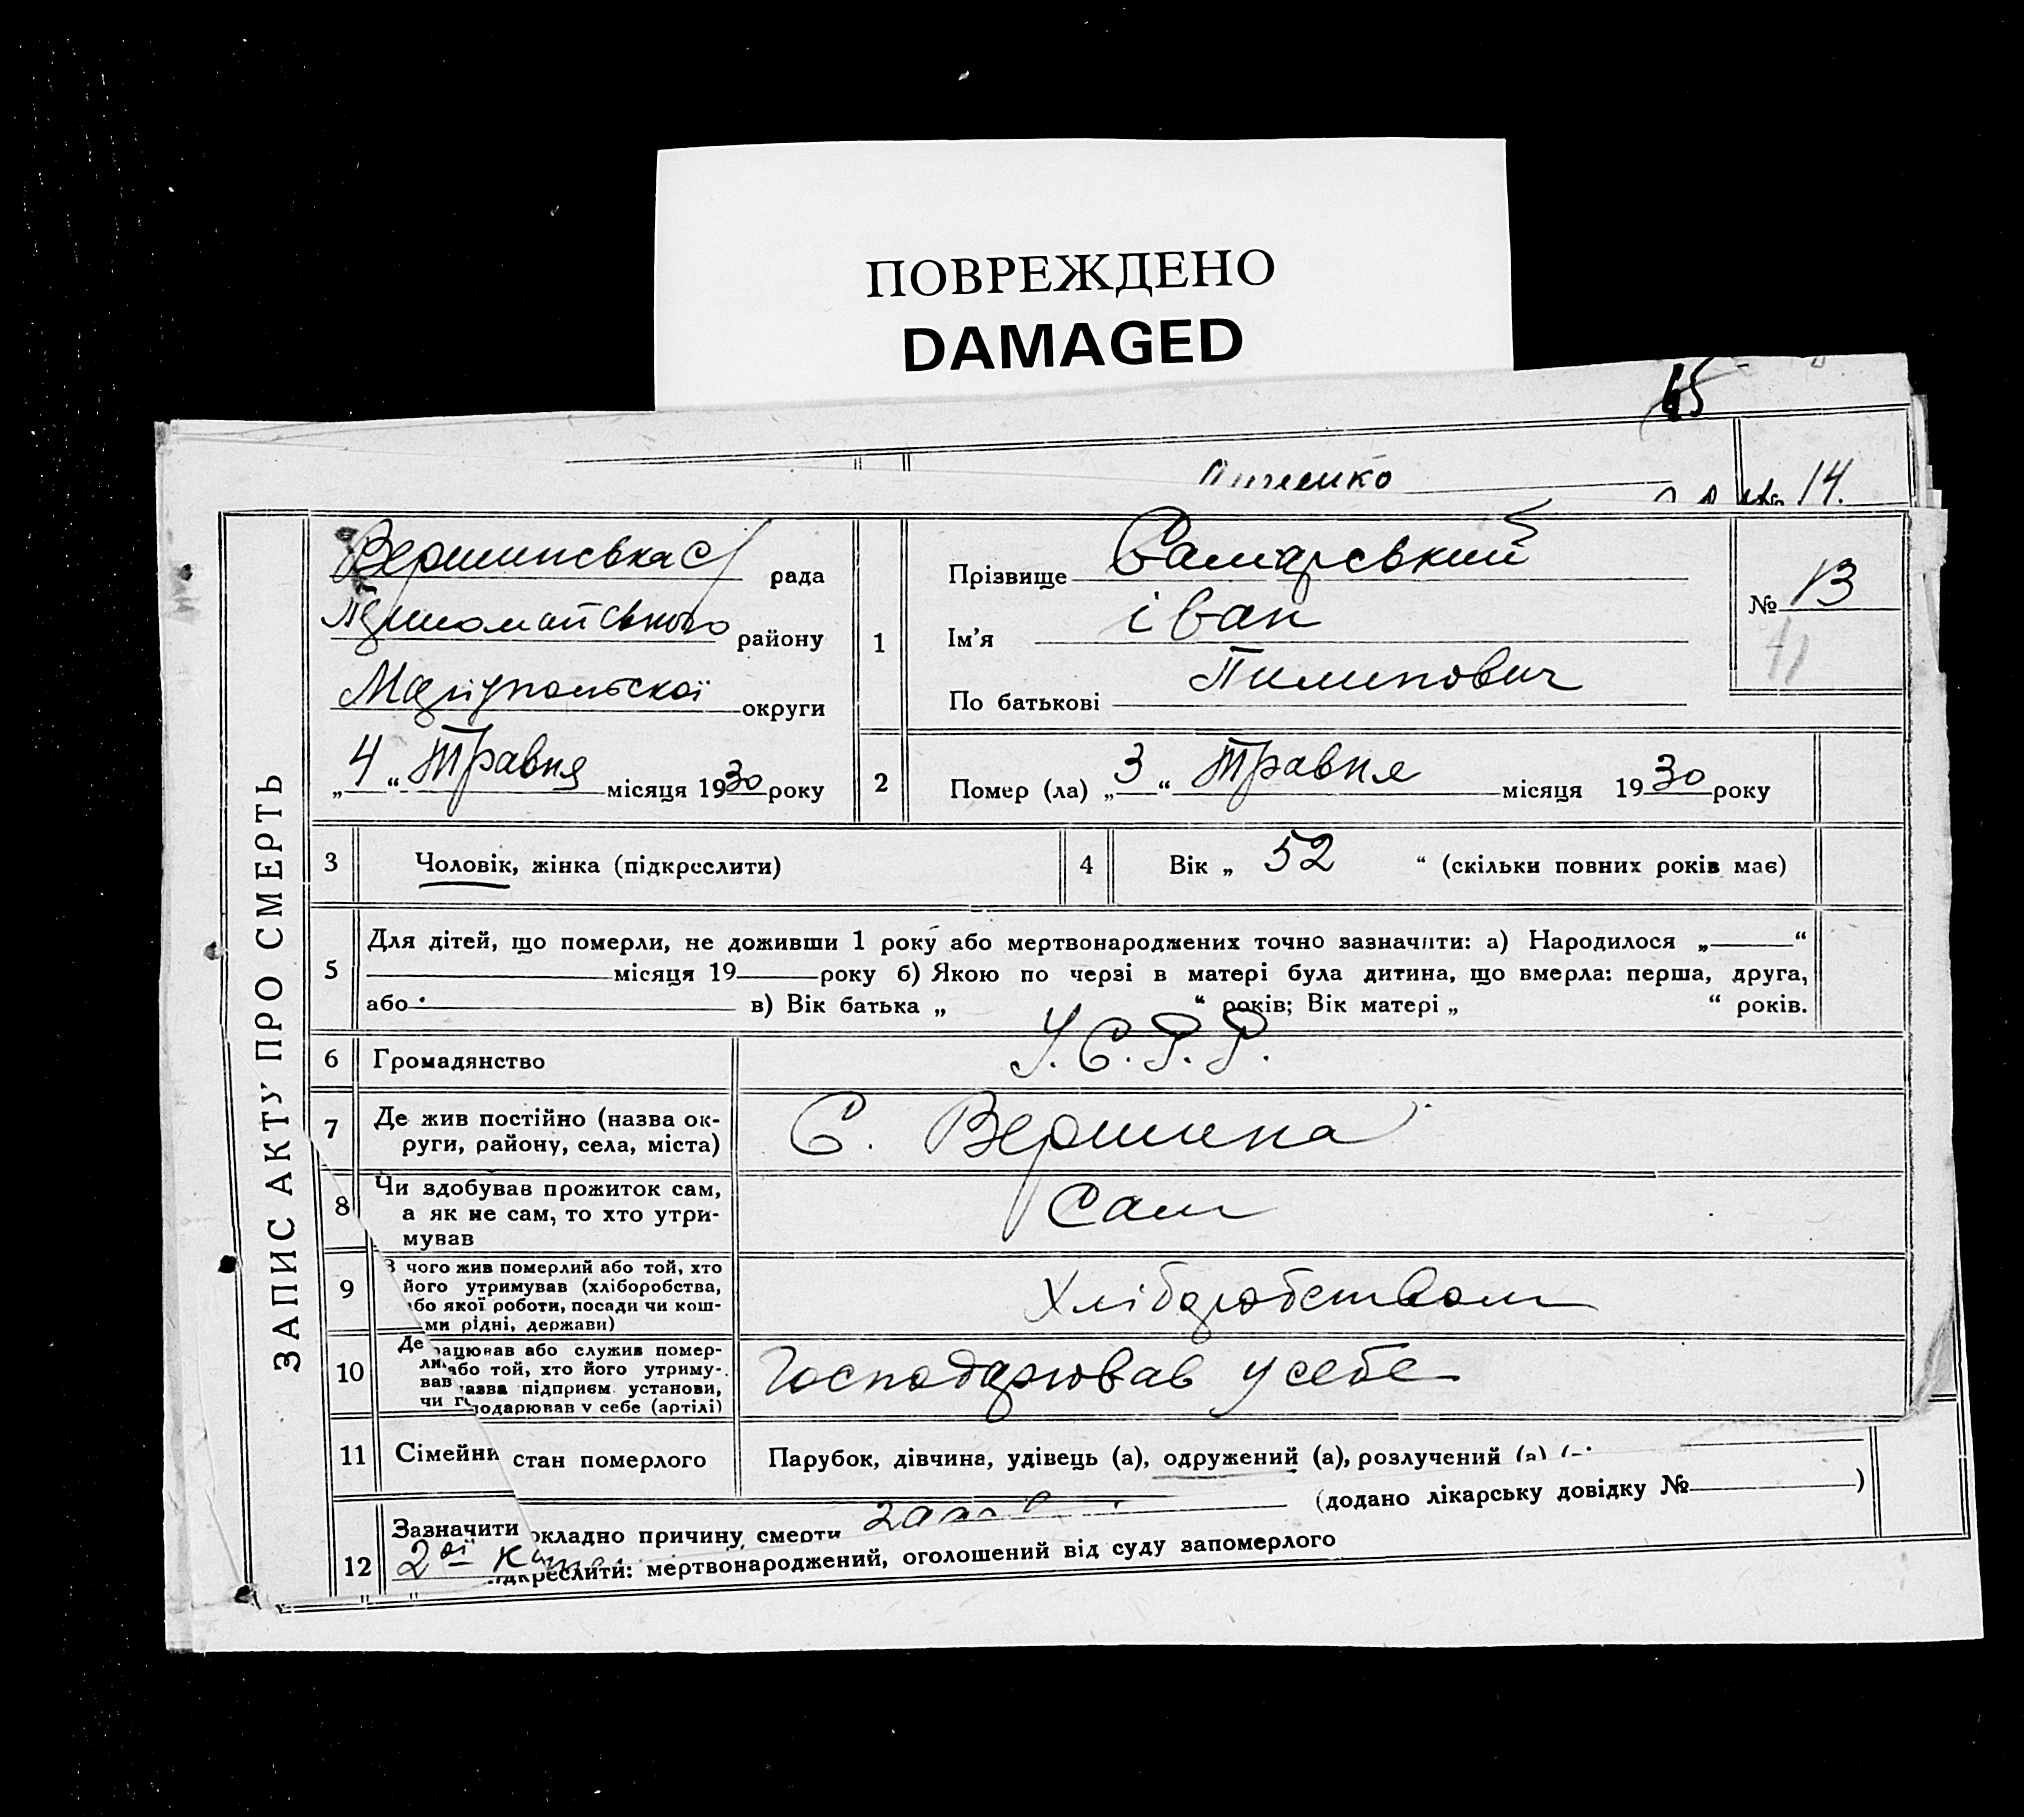 ПОВРЕЖДЕНО
DAMAGED
65
14.
ЗАПИС АКТУ ПРО СМЕРТЬ
Вершинська с/рада
району
Маріупольскої округи
„4“ Травня місяця 1930 року
1
Прізвище Самарський
Ім'я іван
По батькові Пилипович
№ 13
2
Помер (ла) „3“ Травня місяця 1930 року
3 Чоловік, жінка (підкреслити)
4 Вік „ 52 “ (скільки повних років має)
5
Для дітей, що померли, не доживши 1 року або мертвонароджених точно зазначити: а) Народилося „ “
місяця 19 року б) Якою по черзі в матері була дитина, що вмерла: перша, друга,
або в) Вік батька „ “ років; Вік матері „ “ років.
6 Громадянство У.С.Р.Р.
7 Де жив постійно (назва ок-
руги, району, села, міста)
С. Вершина
8 Чи здобував прожиток сам,
а як не сам, то хто утри-
мував
Сам
9 З чого жив померлий або той, хто
його утримував (хліборобства,
або якої роботи, посади чи кош-
ми рідні, держави)
Хліборобством
10 Де рацював або служив помер-
ли або той, хто його утриму-
вав назва підприєм. установи,
чи господарював у себе (артілі)
Господарював у себе
11 Сімейни стан померлого Парубок, дівчина, удівець (а), одружений (а), розлучений (а)
12 Зазначити окладно причину смерти (додано лікарську довідку № )
2ої
підкреслити: мертвонароджений, оголошений від суду запомерлого